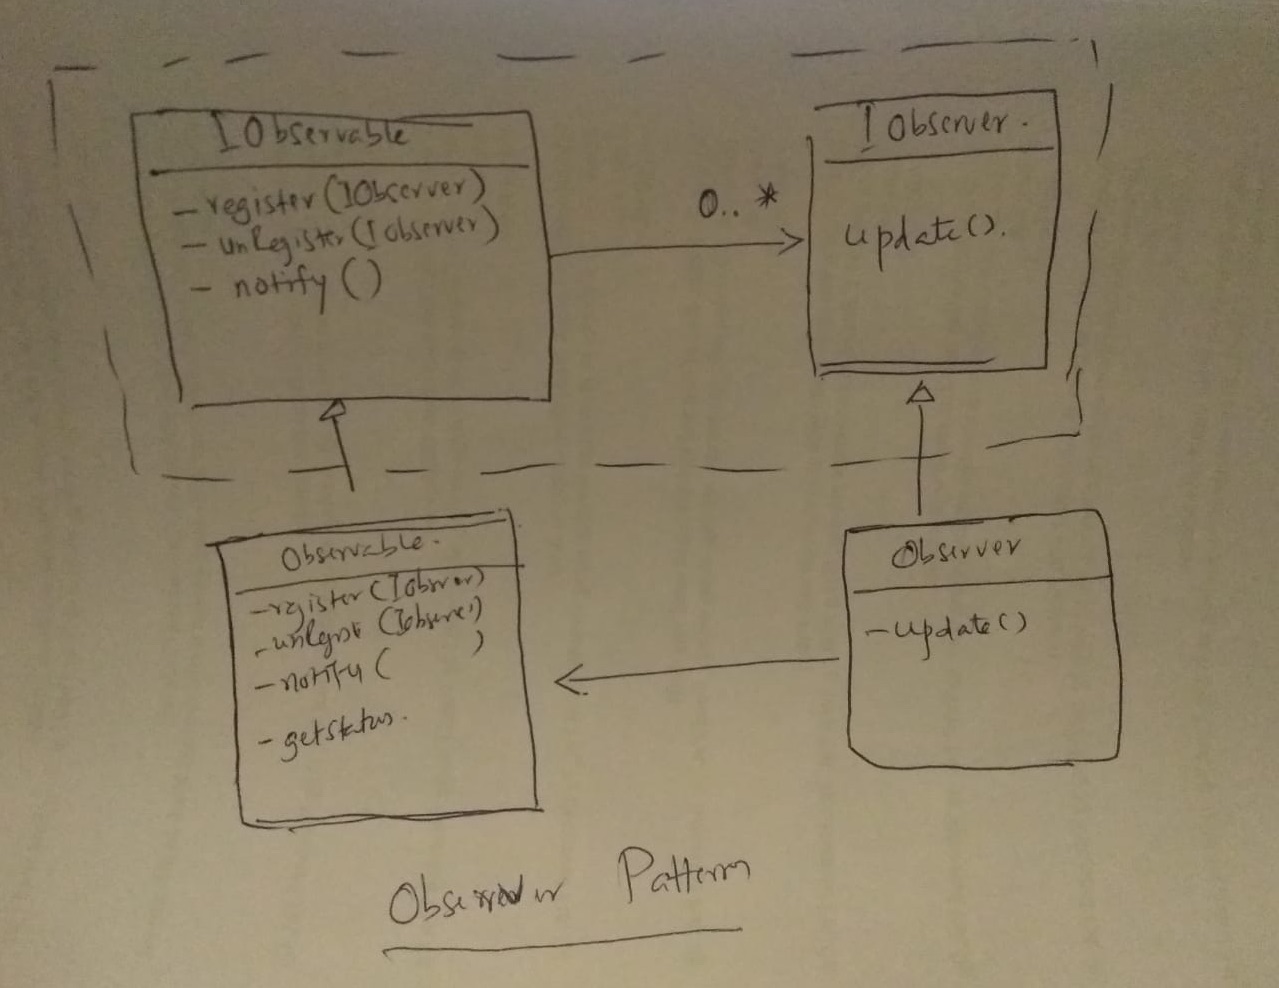 IObservable
- register(IObserver)
- unRegister(IObserver)
- notify()
0..*
IObserver.
update().
Observable.
- register(IObsrver)
- notify( )
- getstatus.
Observer
- update()
Pattern